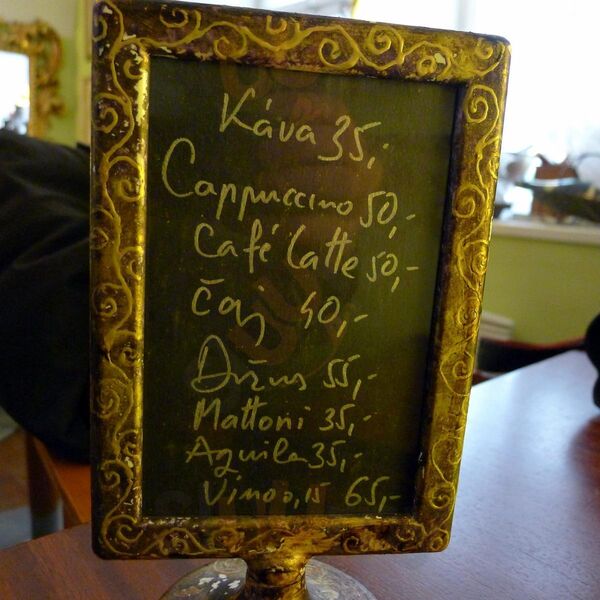 Káva 35,-
Cappuccino 50,-
Café latte 50,-
Čaj 40,-
Džus 55,-
Mattoni 35,-
Aquila 35,-
Víno 0,15 65,-